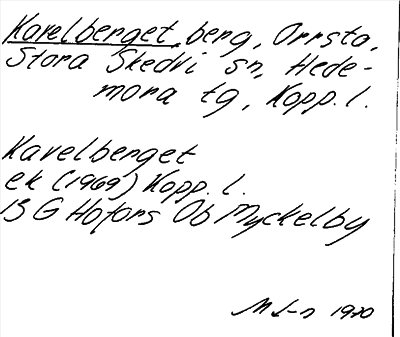 Kavelberget, berg, Orrsta,
Stora Skedvi sn, Hede-
mora tg, Kopp. l.
Kavelberget
ek (1969) Kopp. l.
13 G Hofors Ob Myckelby
M L-n 1970